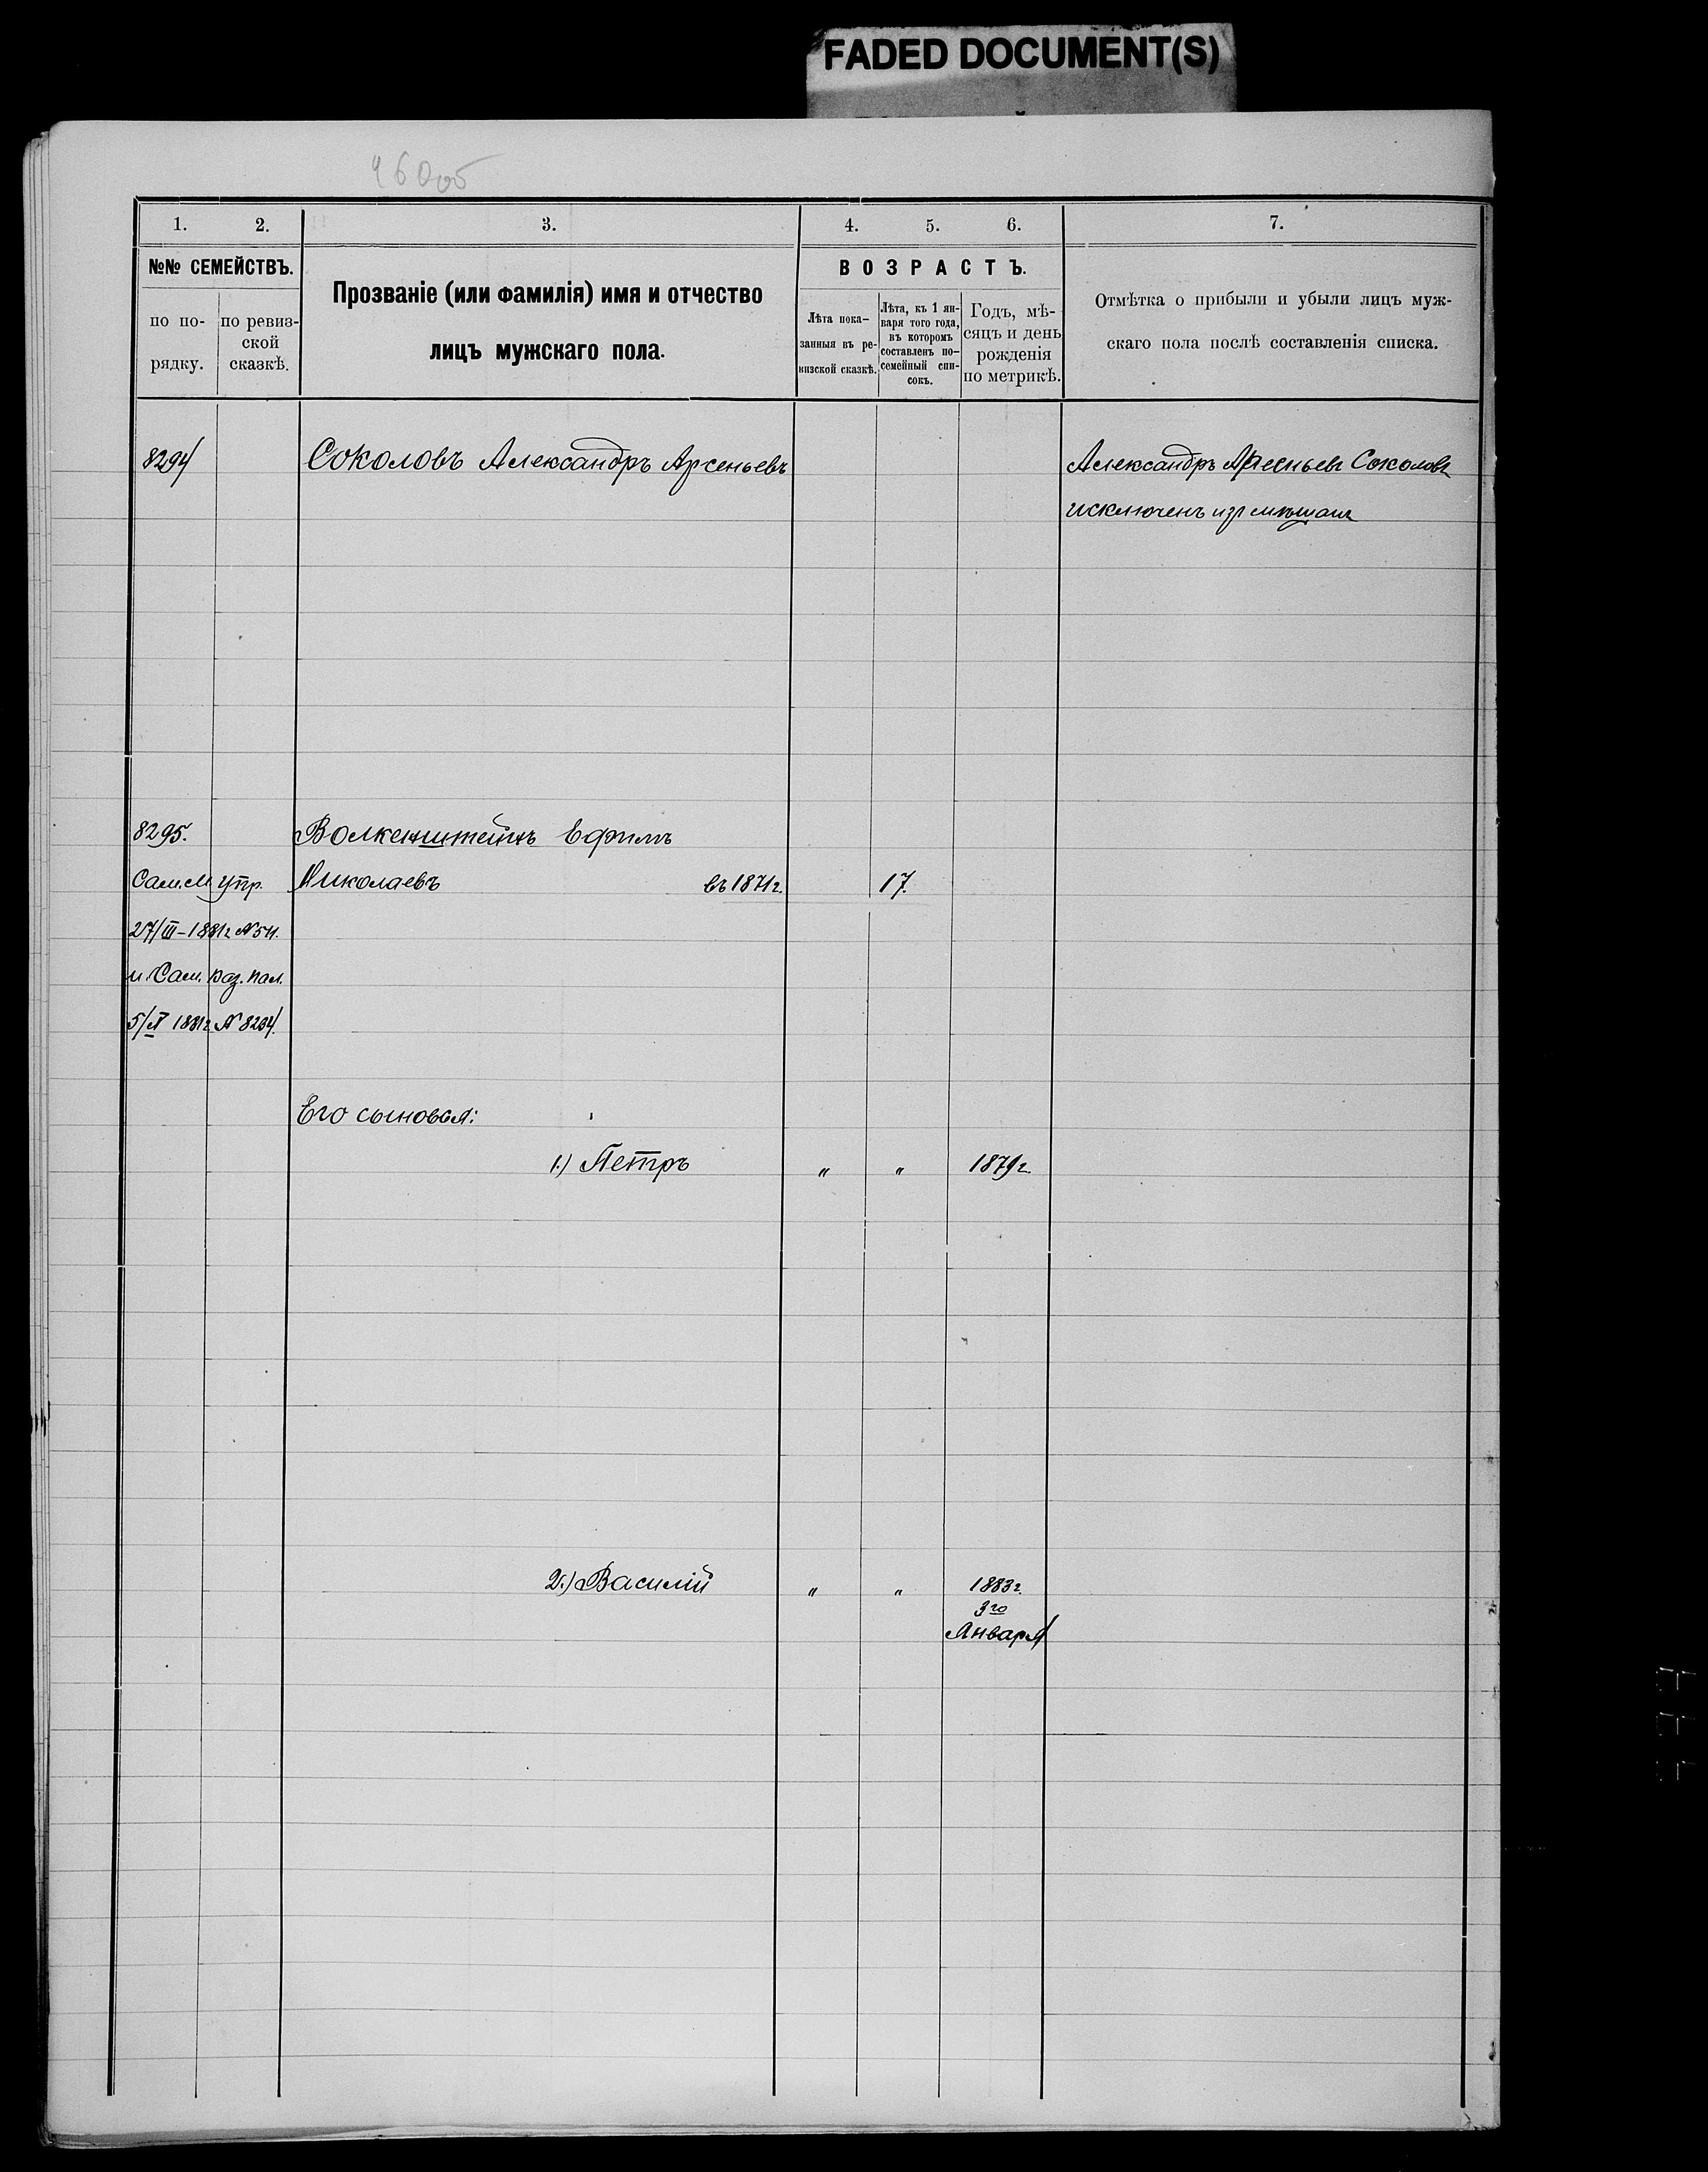 FADED DOCUMENT(S)
1. 2. 3. 4. 5. 6. 7.
№№ СЕМЕЙСТВЪ.
по по-
рядку.
по ревиз-
ской
сказкѣ.
Прозваніе (или фамилія) имя и отчество
лицъ мужскаго пола.
ВОЗРАСТЪ.
Лѣта пока-
занныя въ ре-
визской сказкѣ.
Лѣта, къ 1 ян-
варя того года,
въ которомъ
составленъ по-
семейный спи-
сокъ.
Годъ, мѣ-
сяцъ и день
рожденія
по метрикѣ.
Отмѣтка о прибыли и убыли лицъ муж-
скаго пола послѣ составленія списка.
8294 Соколовъ Александръ Арсеньевъ Александръ Арсеньевъ Соколовъ
исключенъ изъ мѣщанъ
8295. Волкенштейнъ Ефимъ
Сам. М упр. Николаевъ въ 1871г. 17.
27/III-1881г. №511.
и Сам. каз. пал.
1881г. № 8204.
Его сыновья:
1.) Петръ " " 1879г.
2.) Василій " " 1883г.
3го
Января